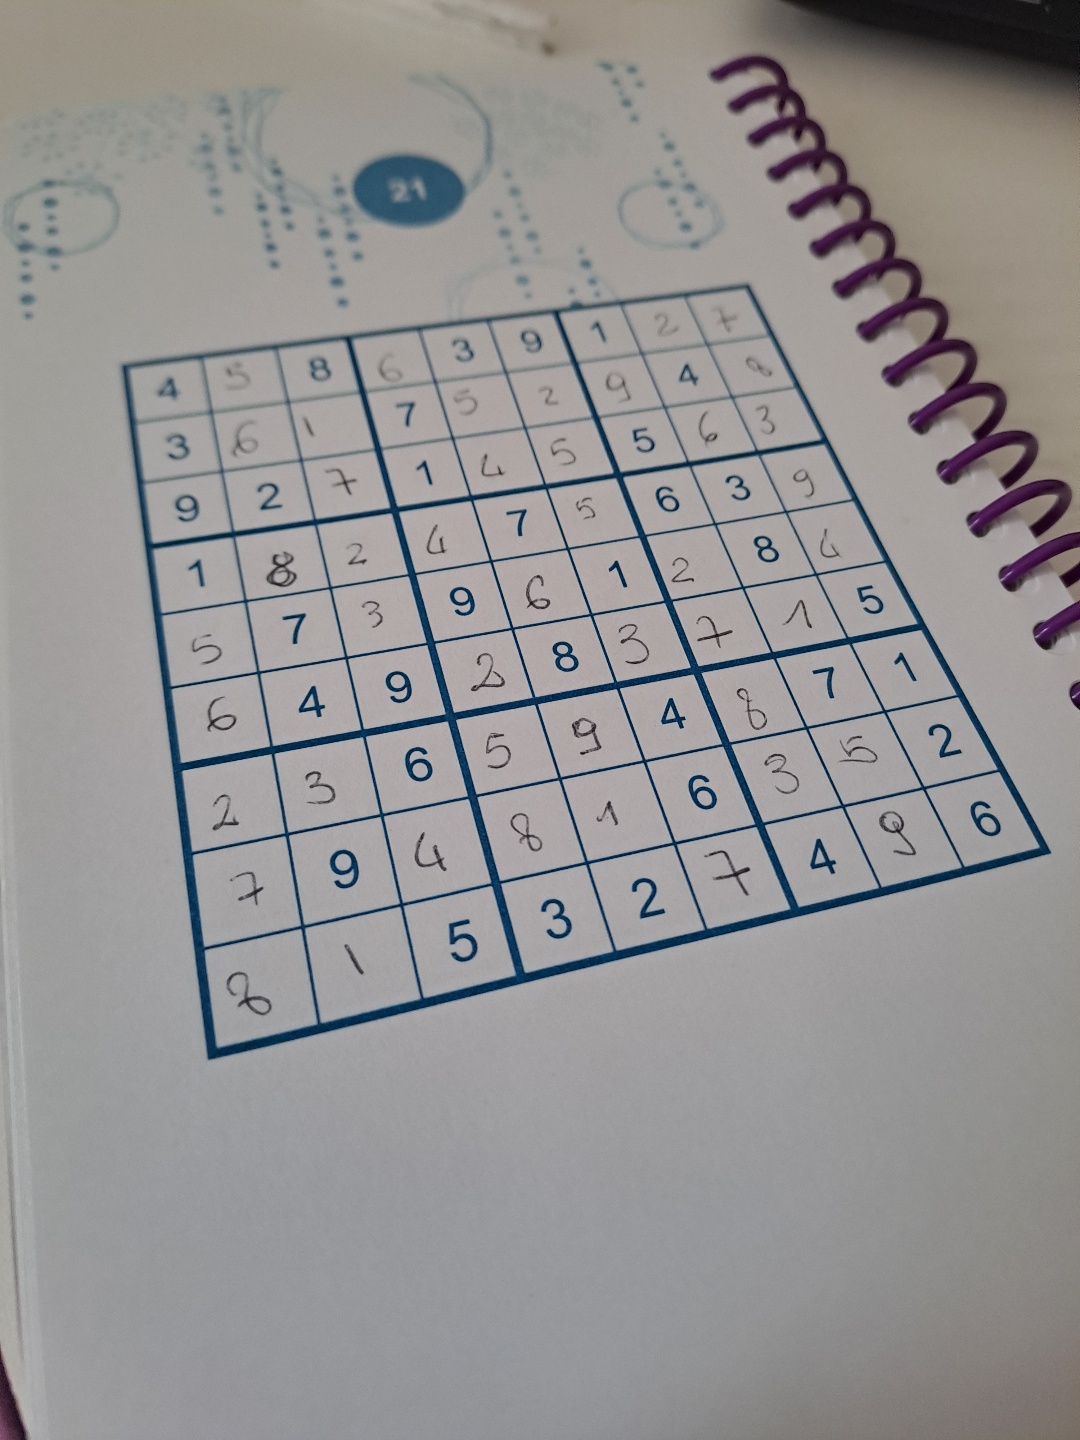 21
4 5 8 6 3 9 1 2 7
3 6 1 7 5 2 9 4 8
9 2 7 1 4 5 5 6 3
1 8 2 4 7 5 6 3 9
5 7 3 9 6 1 2 8 4
6 4 9 2 8 3 7 1 5
2 3 6 5 9 4 8 7 1
7 9 4 8 1 6 3 5 2
8 1 5 3 2 7 4 9 6